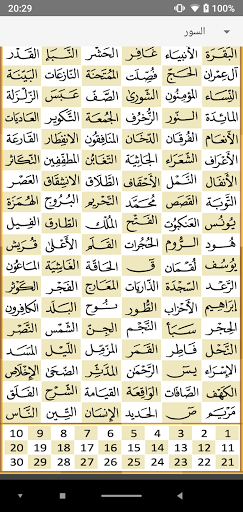 20:29 100%
السور
البَقَرَة الأنبيَاء غَافِر الحَشْر النَّبَإ القَدْر
آل عِمرَان الحَجّ فُصِّلَت المُمتَحنَة النَّازعَات البَيّنَة
النِّسَاء المُؤمِنُون الشّورىٰ الصَّفّ عَبَسَ الزّلزَلة
المَائدة النُّور الزّخرُف الجُمُعَة التَّكوير العَاديَات
الأنعَام الفُرقَان الدّخَان المنَافِقُون الانفِطَار القَارعَة
الأعرَاف الشُّعَرَاء الجَاثيَة التغَابُن المطفّفِين التَّكاثُر
الأنفَال النَّمْل الأحقاف الطَّلَاق الانشقاق العَصْر
التوبَة القَصَص محَمَّد التّحْريم البُرُوج الهُمَزة
يُونُس العَنكبوت الفَتْح المُلْك الطَّارق الفِيل
هُود الرُّوم الحُجُرات القَلَم الأعْلى قُرَيش
يُوسُف لقمَان ق الحَاقَّة الغَاشِيَة المَاعُون
الرَّعْد السَّجدَة الذّاريَات المعَارج الفَجْر الكَوْثر
إبراهِيم الأحزَاب الطُّور نُوح البَلَد الكافِرون
الحِجْر سَبَأ النَّجْم الجِنّ الشَّمْس النَّصْر
النَّحْل فَاطِر القَمَر المُزمّل الليْل المَسَد
الإسْرَاء يسٓ الرَّحمٰن المدَّثِّر الضّحىٰ الإخْلَاص
الكهف الصَّافات الوَاقِعَة القِيَامَة الشَّرْح الفَلَق
مَريَم صٓ الحَديد الإنسَان التِّين النَّاس
1 2 3 4 5 6 7 8 9 10
11 12 13 14 15 16 17 18 19 20
21 22 23 24 25 26 27 28 29 30